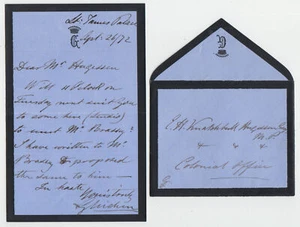 St. James Palace
Sept. 26/72
Dear Mr Hugessen
Will 4 o'clock on
Tuesday next suit you
to come here
to meet Mr Brassey?
I have written to Mr
Brassey & proposed
the same to him —
In haste
E. H. Knatchbull Hugessen Esq
M.P.
Colonial Office